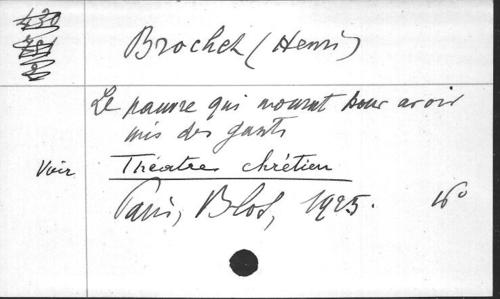 Brochet (Henri)
Le pauvre qui mourut pour avoir
mis des gants
Voir Théatre chrétien
Paris, Blot, 1925. 16°